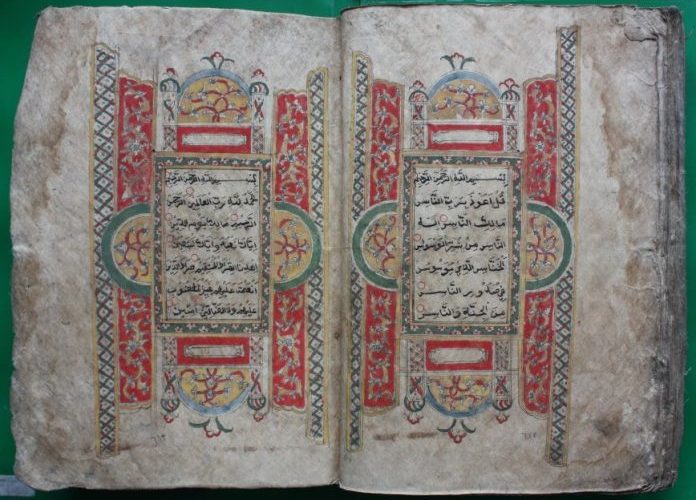 بسم الله الرحمن الرحيم
قل اعوذ برب الناس
مالك الناس اله
الناس من شر الوسواس
الخناس الذي يوسوس
في صدور الناس
من الجنة والناس
بسم الله الرحمن الرحيم
الحمد لله رب العالمين الرحمن
الرحيم مالك يوم الدين
اياك نعبد واياك نستعين
اهدنا الصراط المستقيم صراط الذين
انعمت عليهم غير المغضوب
عليهم ولا الضالين امين